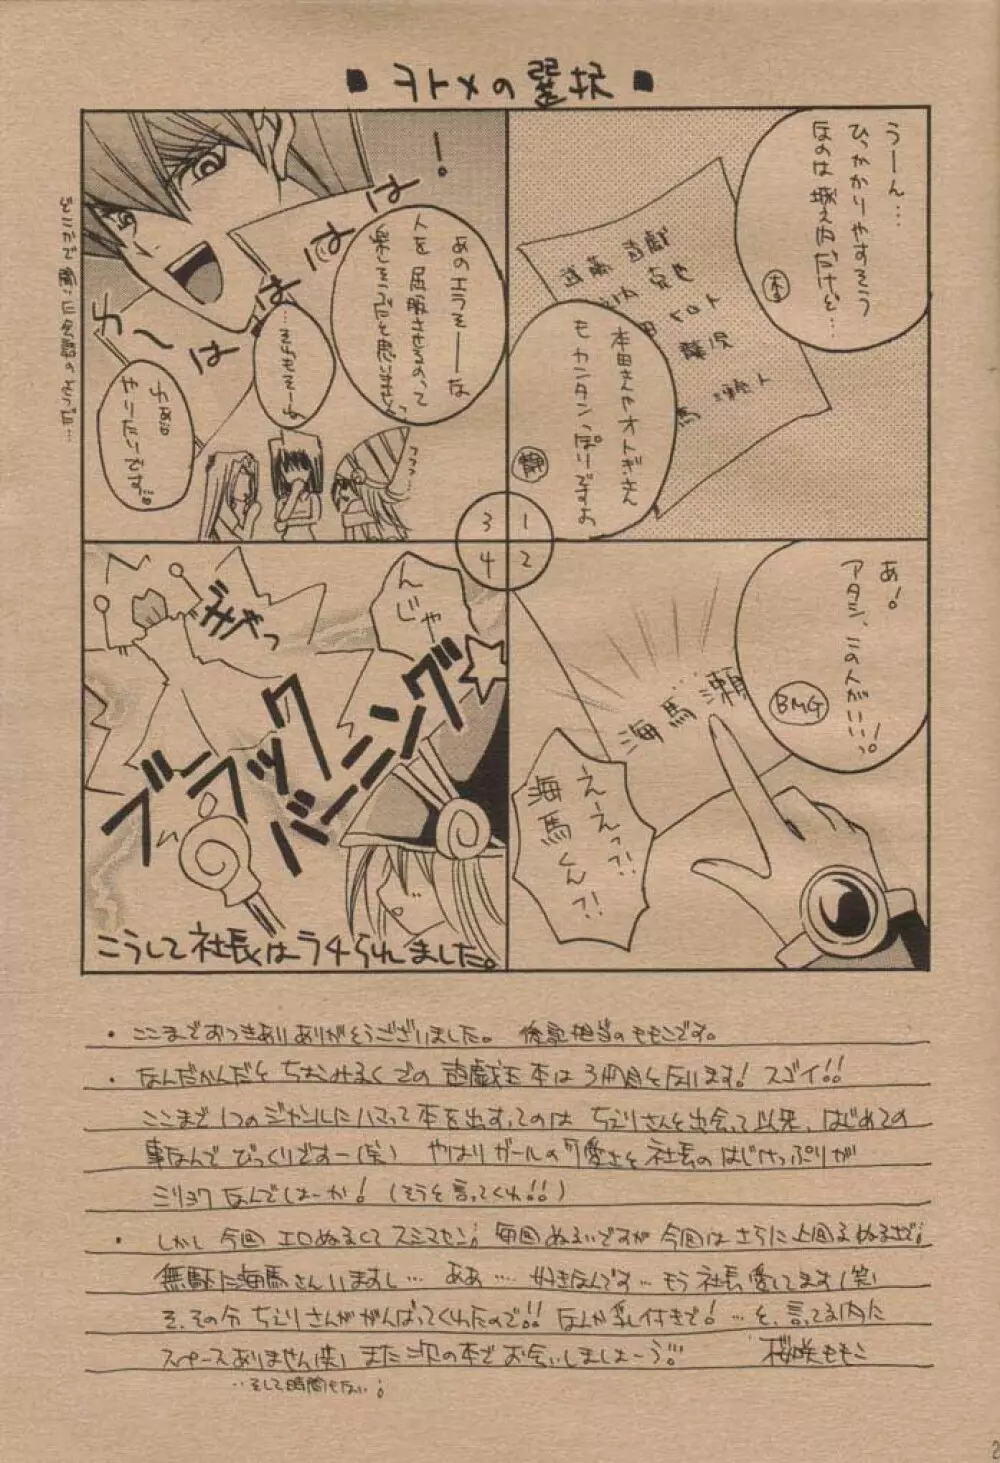 ■ ヲトメの選択 ■
うーん…
ひっかかりやすそう
なのは城之内だけど…
杏
遊戯
本田さんやオトギさん
も カンタンっぽいですよ
静
1
2
3
4
あ!
アタシ、この人がいいっ!
BMG
海馬瀬
えーえっ?!
海馬くん?!
!
あのエラそーな
人を屈服させるのって
楽しそうだと思いません?
…それもそーね
やりたいです。
わ〜はは
どこかで聞いた
んじゃ
ブラック
バーニング
☆
こうして社長はラチられました。
・ここまでおつきあいありがとうございました。 後記担当のももこです。
・なんだかんだとちぇみるくでの遊戯王本は3冊目となります! スゴイ!!
ここまで1つのジャンルにハマって本を出すってのは ちえりさんと出会って以来、はじめての
事なんで びっくりですー(笑) やはりガールの可愛さと社長のはじけっぷりが
ミリョクなんでしょーか! (そうと言ってくれ!!)
・しかし 今回 エロぬるくてスミマセン; 毎回ぬるいですが 今回は さらに上回るぬるさで;
無駄に海馬さんいますし… ああ… 好きなんです…もう社長愛してます(笑)
そ、その分ちえりさんががんばってくれたので!! なんか乳付きで! …と、言ってる内に
スペースありません(笑) また次の本でお会いしましょーう!! 桜咲ももこ
…そして時間もない;
2